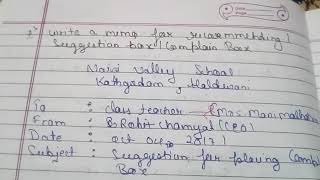 write a memo for recommending/
Suggestion box/Complain Box
Naini Valley School
Kathgodam, Haldwani
To : Class teacher (Mrs Mani malhotra
From : Rohit Chamyal (CEO)
Date : oct
Subject : Suggestion for placing
Box